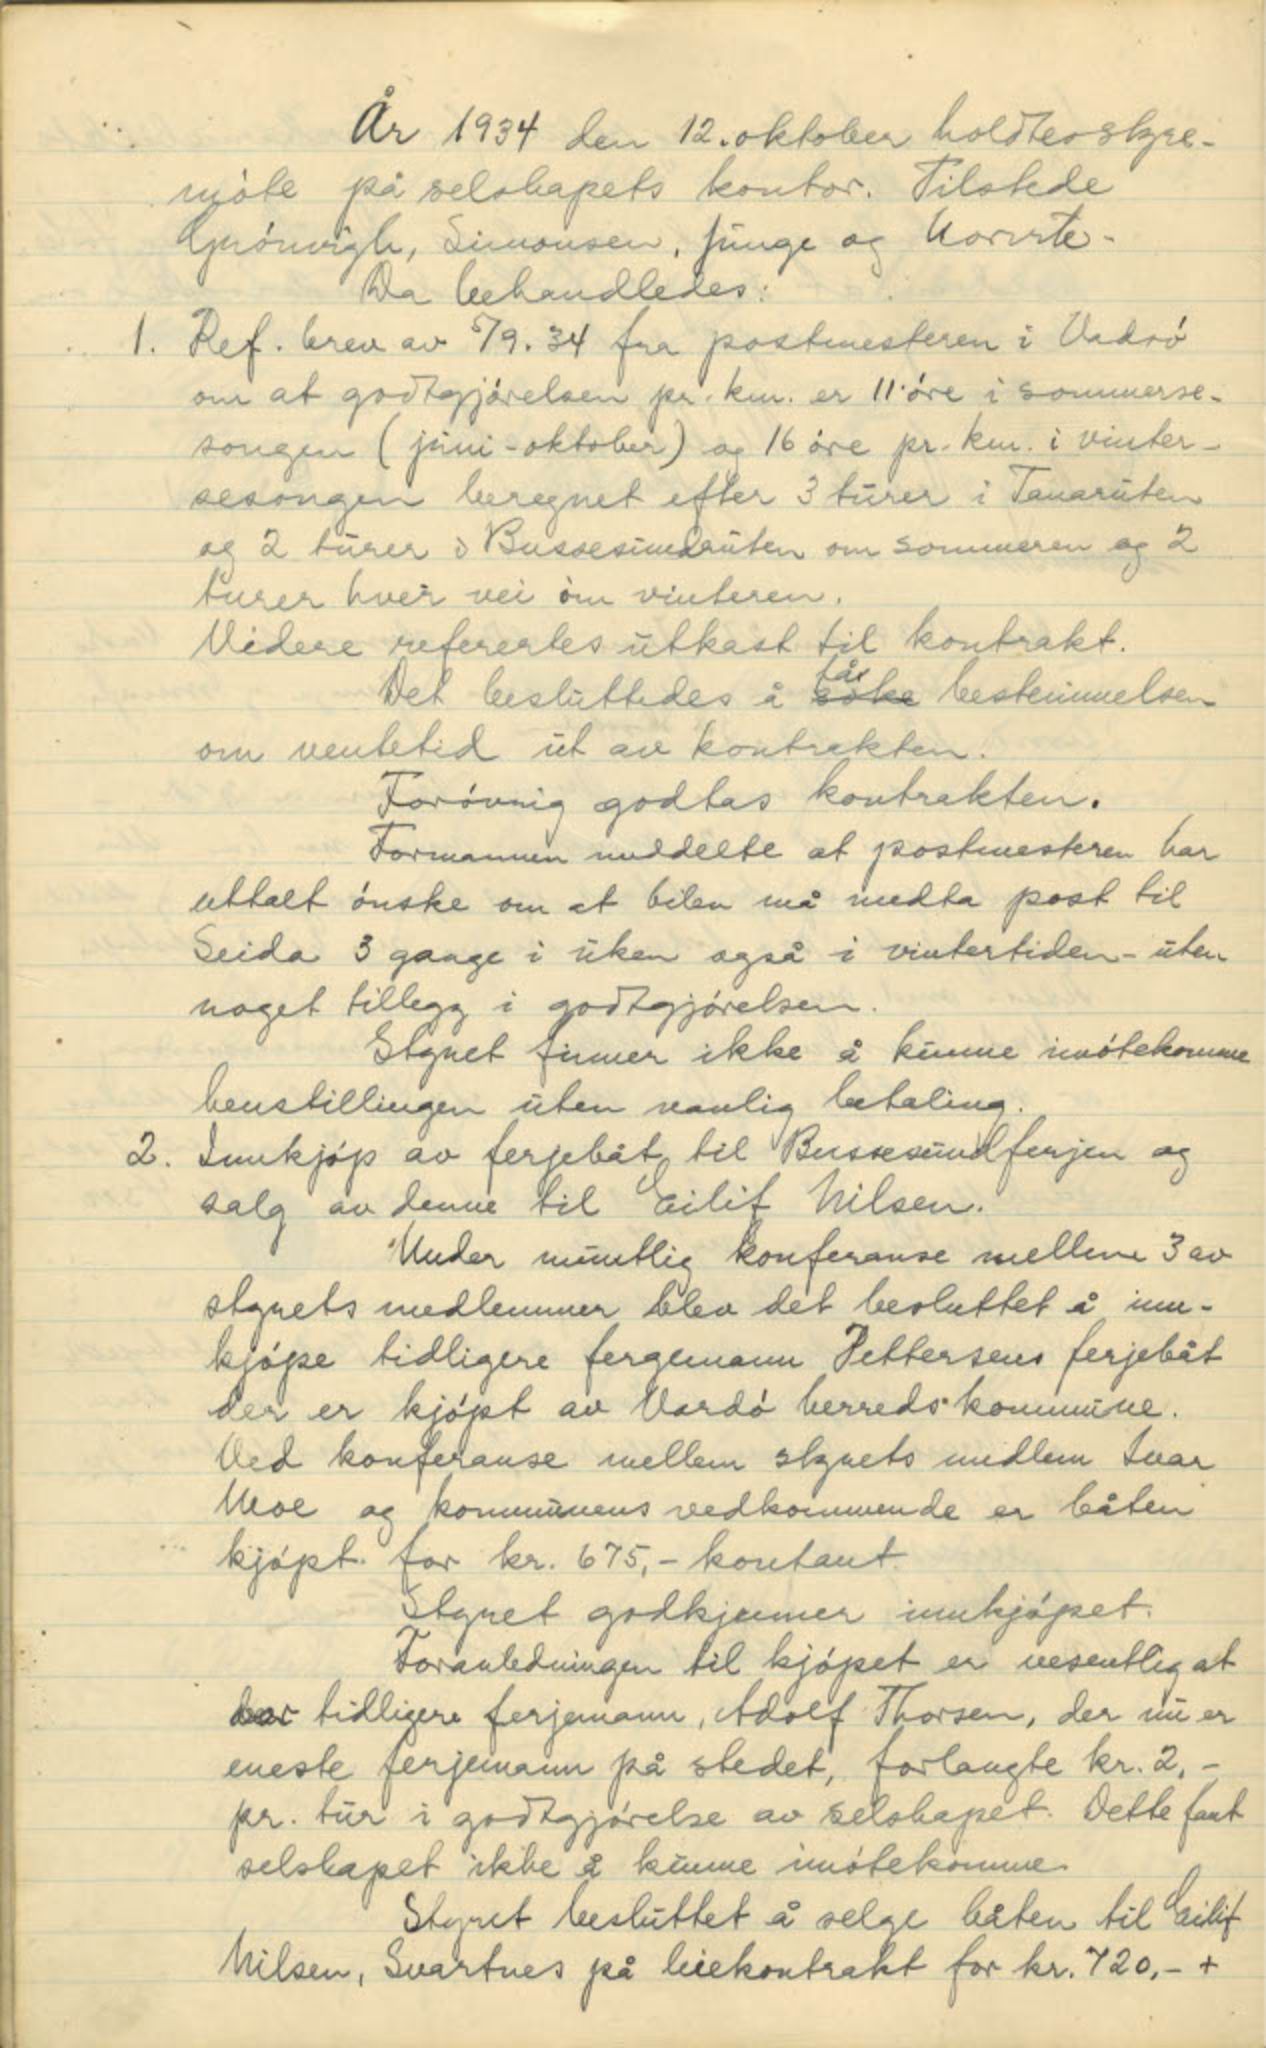 År 1934 den 12. oktober holdtes styre-
møte på selskapets kontor. Tilstede
Grønvigh, Simonsen, Junge og
Da behandledes:
1. Ref. brev av 5/9.34 fra postmesteren i Vadsø
om at godtgjørelsen pr. km. er 11 øre i sommerse-
songen (juni-oktober) og 16 øre pr. km. i vinter-
sesongen beregnet efter 3 turer i Tanaruten
og 2 turer i Bussesundruten om sommeren og 2
turer hver vei om vinteren.
Videre referertes utkast til kontrakt.
Det besluttedes å få søke bestemmelsen
om ventetid ut av kontrakten.
Forøvrig godtas kontrakten.
Formannen meddelte at postmesteren har
uttalt ønske om at bilen må medta post til
Seida 3 gange i uken også i vintertiden - uten
noget tillegg i godtgjørelsen.
Styret finner ikke å kunne imøtekomme
henstillingen uten vanlig betaling.
2. Innkjøp av ferjebåt til Bussesundferjen og
salg av denne til Eilif Nilsen.
Under muntlig konferanse mellem 3 av
styrets medlemmer blev det besluttet å inn-
kjøpe tidligere fergemann Pettersens ferjebåt
der er kjøpt av Vardø herredskommune.
Ved konferanse mellem styrets medlem Ivar
Moe og kommunens vedkommende er båten
kjøpt for kr. 675,- kontant.
Styret godkjenner innkjøpet.
Foranledningen til kjøpet er vesentlig at
tidligere ferjemann, Adolf Thorsen, der nu er
eneste ferjemann på stedet, forlangte kr. 2,-
pr. tur i godtgjørelse av selskapet. Dette fant
selskapet ikke å kunne imøtekomme.
Styret besluttet å selge båten til Eilif
Nilsen, Svartnes på leiekontrakt for kr. 720,- +